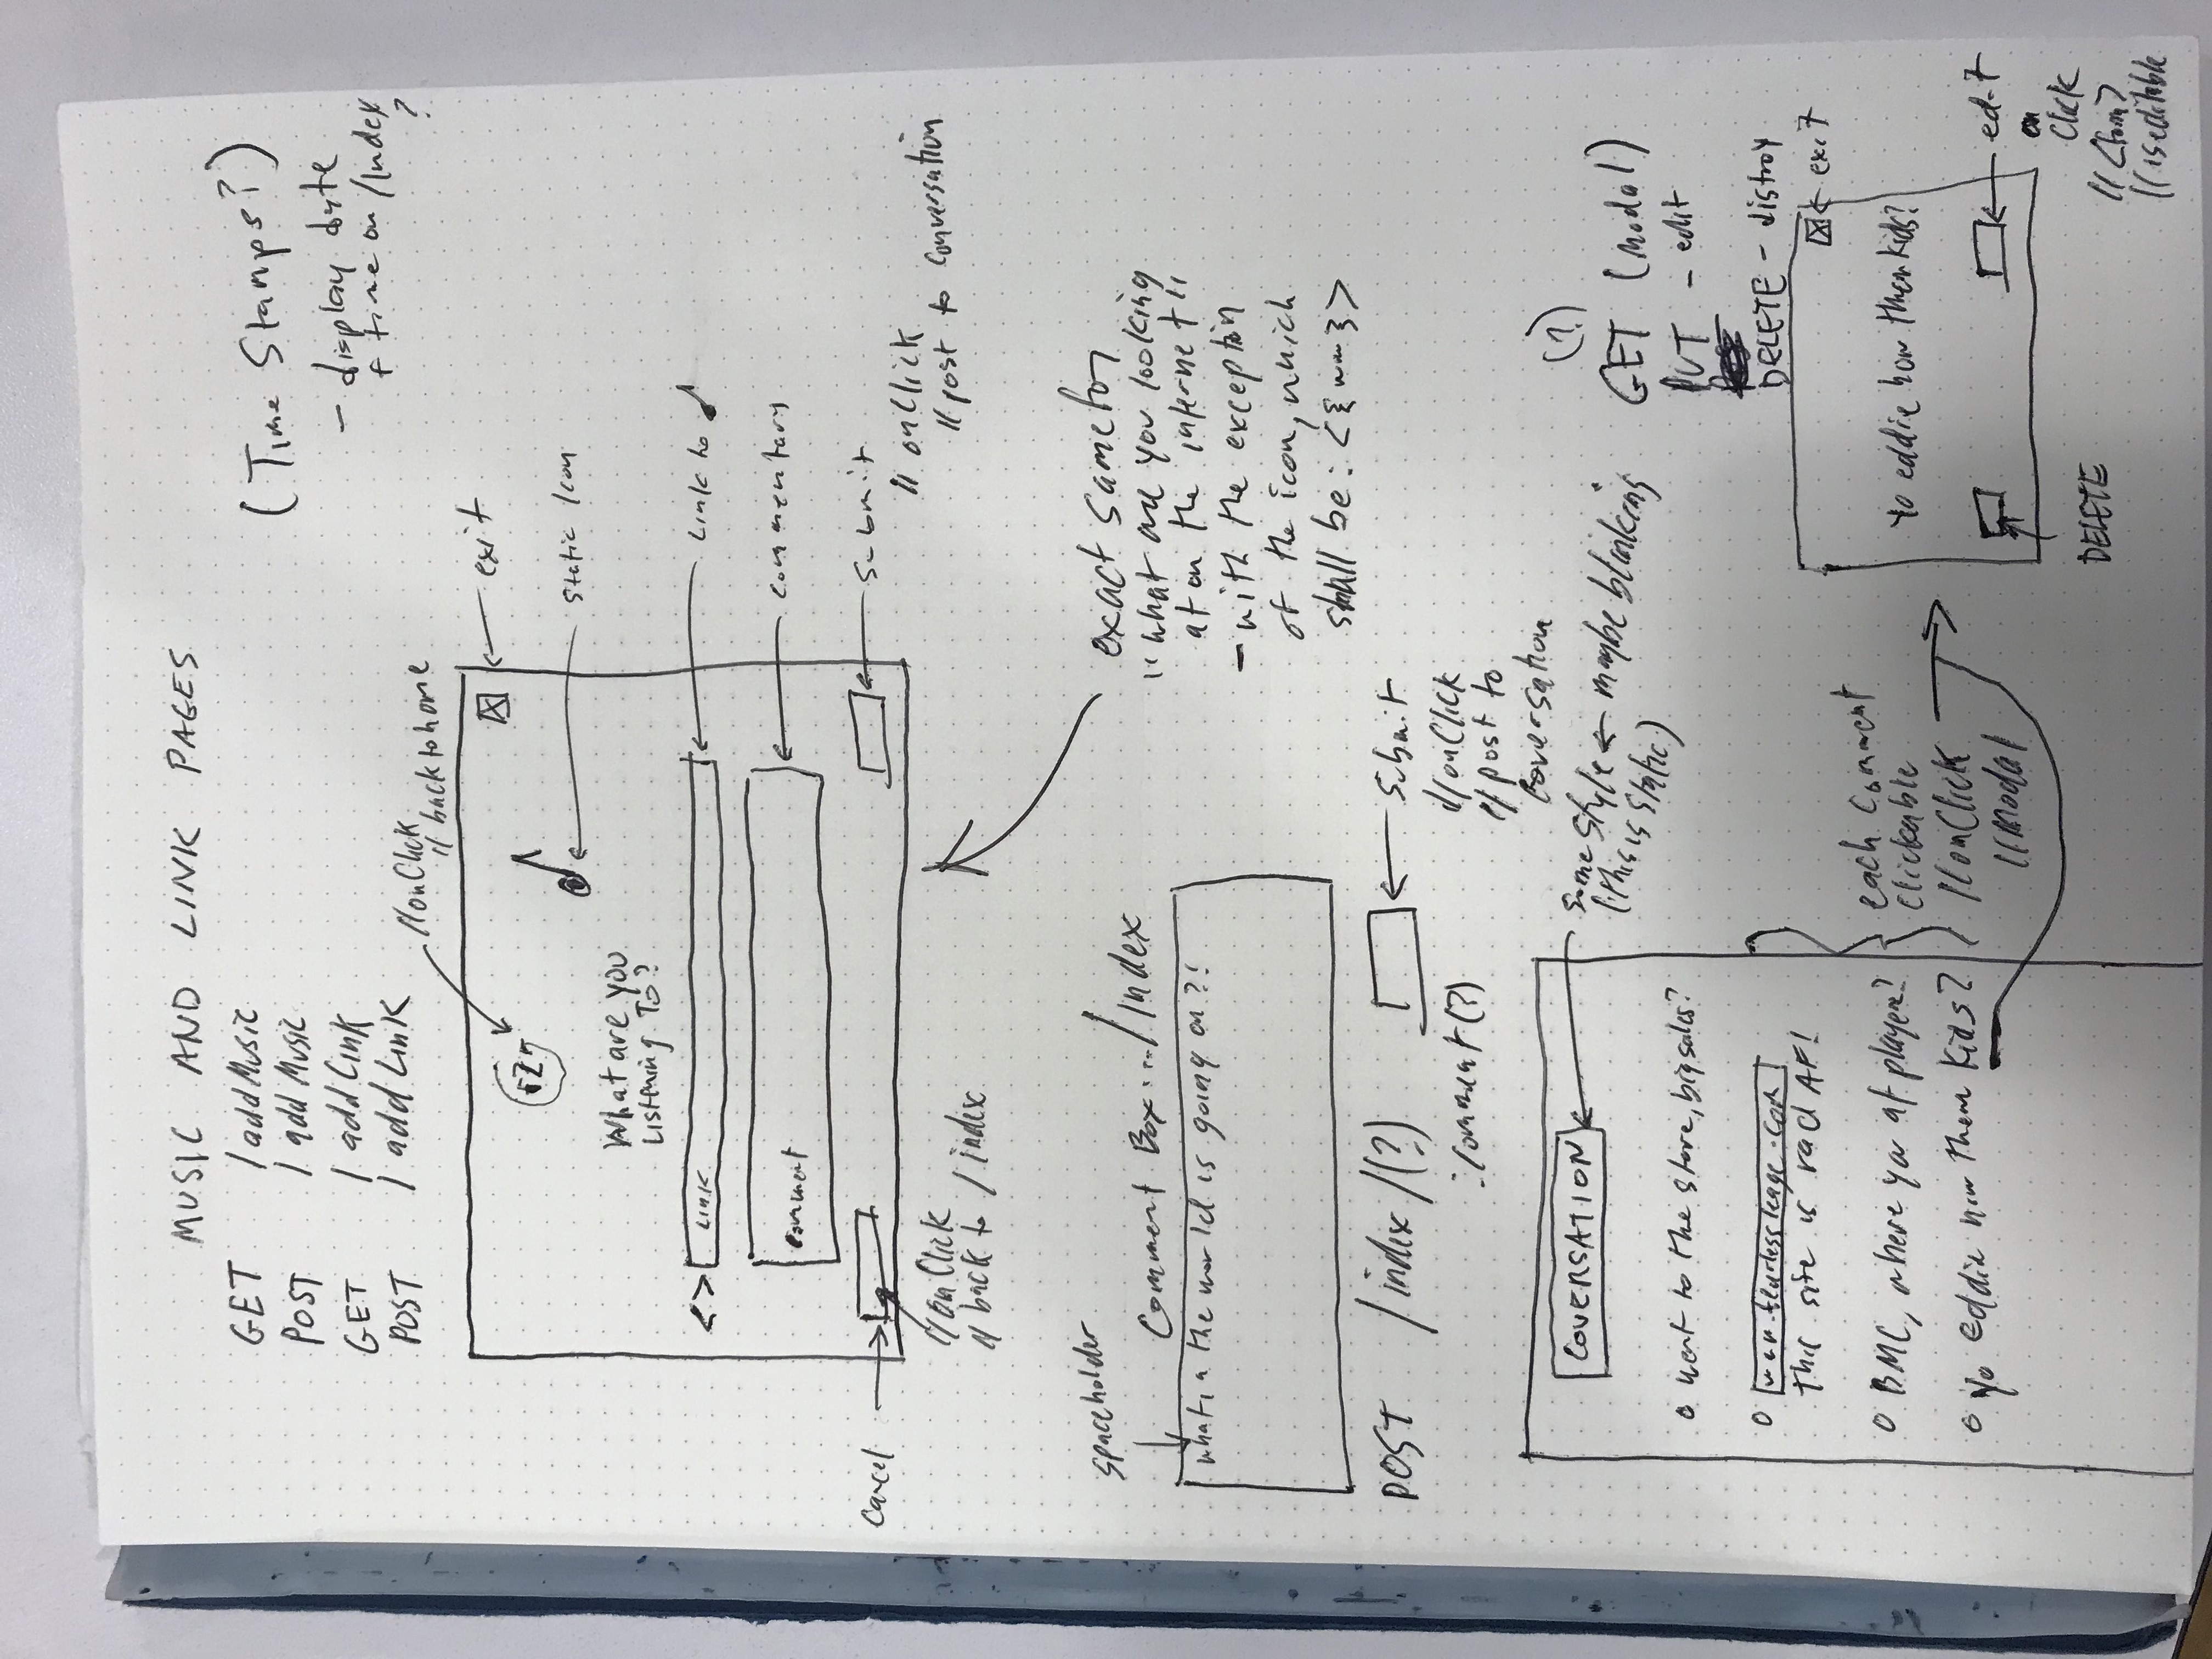 MUSIC AND LINK PAGES
GET /addMusic
POST /addMusic
GET /addLink
POST /addLink
(Time Stamps?)
- display date
+ time on /Index
?
//onClick
// back to home
exit
Static Icon
What are you
Listening To?
<> Link
Link to ♪
Comment
commentary
Cancel
Submit
//onClick
// back to /index
// onClick
// post to conversation
spaceholder
Comment Box.../Index
what in the world is going on?!
exact same for
"what are you looking
at on the internet"
- with the exception
of the icon, which
shall be: <{ww}>
POST /index/(?)
:comment(?)
Submit
//onClick
// post to
Coversation
COVERSATION
some style ← maybe blinking
(this is static)
o went to the store, big sales?
o
this site is rad AF!
o BMC, where you at playere?
o Yo eddie how them kids?
each comment
clickable
//onClick
//Modal
(?)
GET (modal)
PUT - edit
DELETE - distroy
exit
Yo eddie how them kids?
DELETE
edit
on
Click
// <form>
// iseditable